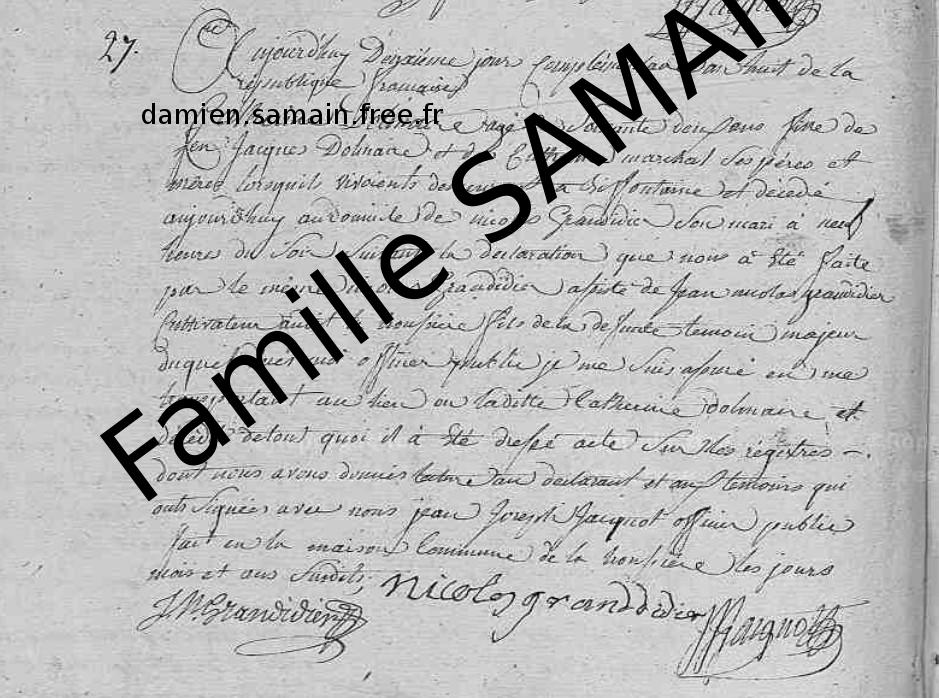 27.
Aujourd'huy Deuxième jour Complémentaire an huit de la
république francaise
damien.samain.free.fr
Catherine Dolmaire agée de Soixante deux ans fille de
feu Jacques Dolmaire et de Catherine marchal Ses péres et
méres lorsquils vivoients a Biffontaine et décedé
aujourd'huy au domicile de nicolas Grandidier Son mari à neuf
heures du Soir Suivant la declaration que nous à Eté faite
par le même nicolas Grandidier assisté de Jean nicolas grandidier
Cultivateur audit la houssière fils de la defunte temoin majeur
duquel officier publie je me Suis assuré en me
transportant au lieu ou laditte Catherine dolmaire et
décédé detout quoi il à Eté dressé acte Sur les régistres -.
dont nous avons donnés lecture au declarant et aux temoins qui
onts Signées avec nous jean Joseph Jacquot officier publie
fait en la maison Commune de la houssière les jours
mois et ans Susdits;
nicolas grandidier
JN Grandidier
JJJacquot
Famille SAMAIN